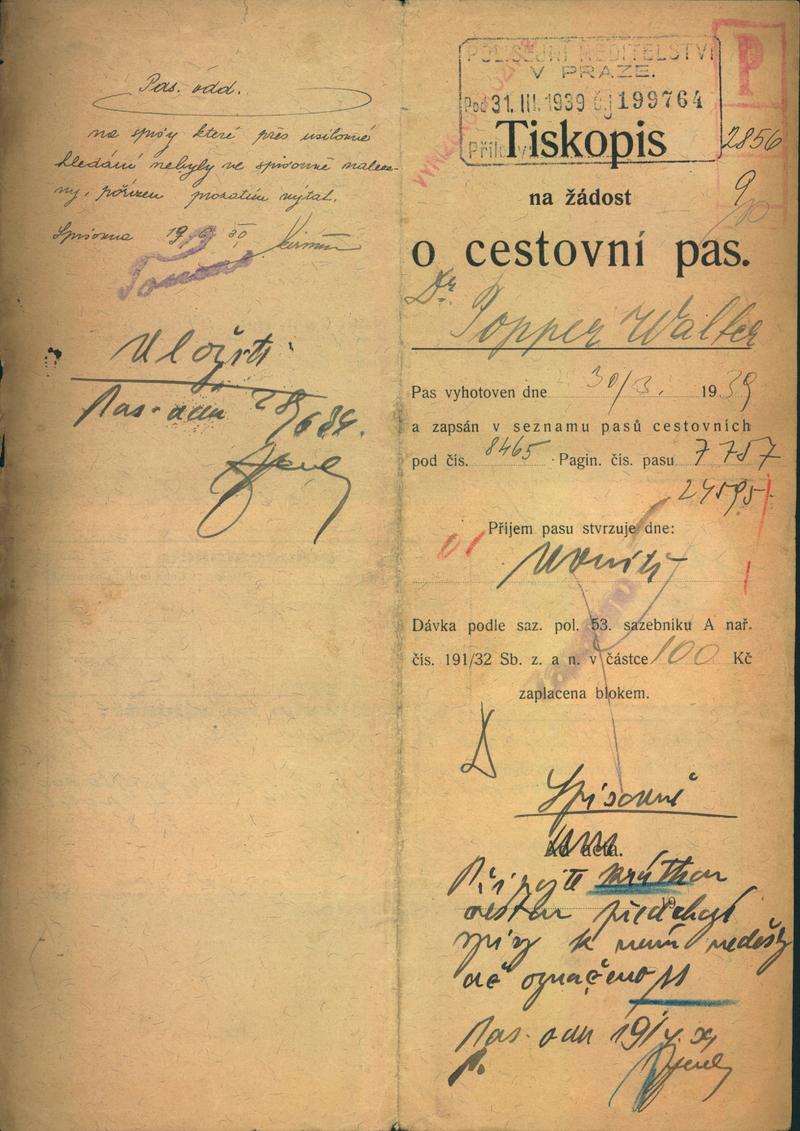 Pas. odd.
na spisy které přes usilovné
hledání nebyly ve spisovně naleze-
ny, pořízen prozatím výtah.
Spisovna
Vložiti
Pas.
POLICEJNÍ ŘEDITELSTVÍ
V PRAZE.
Pod 31. III. 1939 čj 199764
Přílohy
P
Tiskopis
2856
9
na žádost
o cestovní pas.
Dr. Popper Walter
Pas vyhotoven dne 30/3. 1939
a zapsán v seznamu pasů cestovních
pod čís. 8465 Pagin. čís. pasu 7757
24595
Příjem pasu stvrzuje dne:
Dávka podle saz. pol. 53. sazebníku A nař.
čís. 191/32 Sb. z. a n. v částce 100 Kč
zaplacena blokem.
Spisovně
Ad acta.
Připojte krátkou
cestou předchozí
spisy k nimž
označeno
Pas.